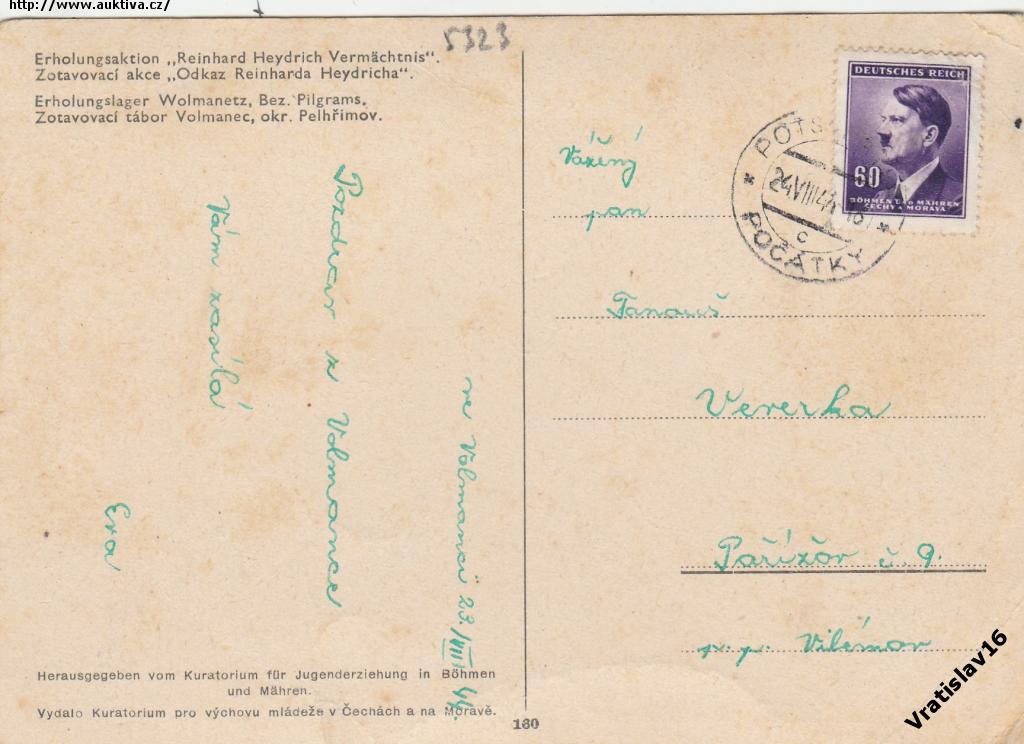 http://www.auktiva.cz/
5323
Erholungsaktion „Reinhard Heydrich Vermächtnis".
Zotavovací akce „Odkaz Reinharda Heydricha".
Erholungslager Wolmanetz, Bez. Pilgrams.
Zotavovací tábor Volmanec, okr. Pelhřimov.
ve Volmanci 23./VIII 44.
Pozdrav z Volmance
Vám zasílá
Eva
Herausgegeben vom Kuratorium für Jugenderziehung in Böhmen
und Mähren.
Vydalo Kuratorium pro výchovu mládeže v Čechách a na Moravě.
160
DEUTSCHES REICH
60
BÖHMEN UND MÄHREN
ČECHY A MORAVA
24.VIII.44
c
POČÁTKY
Vážený
pan
Vererka
Pařížov č. 9.
p. p. Vilémov
Vratislav16